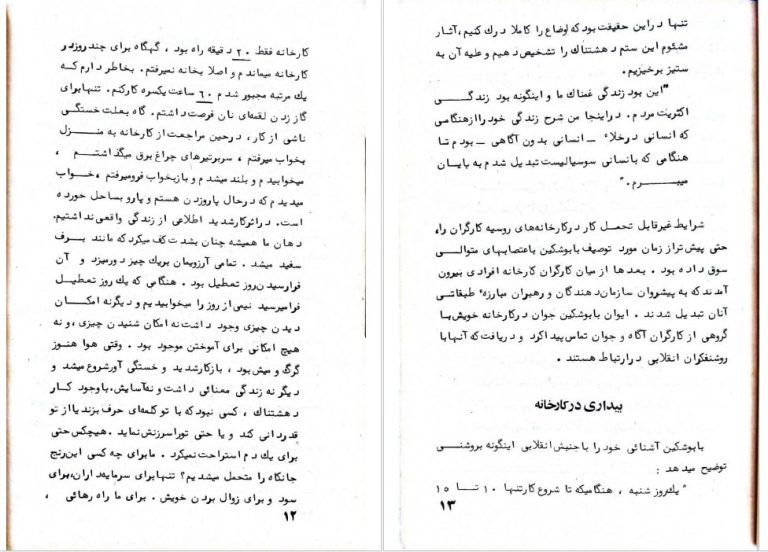 کارخانه فقط ۲۰ دقیقه راه بود ، گهگاه برای چند روز در
کارخانه میماندم و اصلا بخانه نمیرفتم. بخاطر دارم که
یك مرتبه مجبور شدم ۶۰ ساعت یکسره کارکنم. تنها برای
گاز زدن لقمه‌ای نان فرصت داشتم. گاه بعلت خستگی
ناشی از کار ، در حین مراجعت از کارخانه به منزل
بخواب میرفتم ، سر بر تیرهای چراغ برق میگذاشتم ،
میخوابیدم و بلند میشدم و باز بخواب فرو میرفتم ، خواب
میدیدم که در حال پاروزدن هستم و پارو بساحل خورده
است. در اثر کار شدید اطلاعی از زندگی واقعی نداشتیم.
دهان ما همیشه چنان بشدت کف میکرد که مانند برف
سفید میشد . تمامی آرزویمان بر یك چیز دور میزد و آن
فرارسیدن روز تعطیل بود . هنگامی که یك روز تعطیل
فرا میرسید نیمی از روز را میخوابیدیم و دیگر نه امکان
دیدن چیزی وجود داشت نه امکان شنیدن چیزی ، و نه
هیچ امکانی برای آموختن موجود بود . وقتی هوا هنوز
گرگ و میش بود ، باز کار شدید و خستگی آور شروع میشد و
دیگر نه زندگی معنائی داشت و نه آسایش. با وجود کار
دهشتناك ، کسی نبود که با تو کلمه‌ای حرف بزند یا از تو
قدردانی کند و یا حتی تو را سرزنش نماید . هیچکس حتی
برای یك دم استراحت نمیکرد . ما برای چه کسی این رنج
جانکاه را متحمل میشدیم؟ تنها برای سرمایه‌داران ، برای
سود و برای زوال بردن خویش . برای ما راه رهائی ،
۱۲
تنها در این حقیقت بود که اوضاع را کاملا درك کنیم ، آثار
مشئوم این ستم دهشتناك را تشخیص دهیم و علیه آن به
ستیز برخیزیم.
"این بود زندگی غمناك ما و اینگونه بود زندگی
اکثریت مردم . در اینجا من شرح زندگی خود را از هنگامی
که انسانی در خلاء ـ انسانی بدون آگاهی ـ بودم تا
هنگامی که بانسانی سوسیالیست تبدیل شدم به پایان
میبرم . "
شرایط غیرقابل تحمل کار در کارخانه‌های روسیه کارگران را ،
حتی پیش‌تر از زمان مورد توصیف بابوشکین باعتصابهای متوالی
سوق داده بود . بعدها از میان کارگران کارخانه افرادی بیرون
آمدند که به پیشروان سازماندهندگان و رهبران مبارزهٔ طبقاتی
آنان تبدیل شدند . ایوان بابوشکین جوان در کارخانه خویش با
گروهی از کارگران آگاه و جوان تماس پیدا کرد و دریافت که آنها با
روشنفکران انقلابی در ارتباط هستند .
بیداری در کارخانه
بابوشکین آشنائی خود را با جنبش انقلابی اینگونه بروشنی
توضیح میدهد :
"یك روز شنبه ، هنگامیکه تا شروع کار تنها ۱۰ تا ۱۵
۱۳